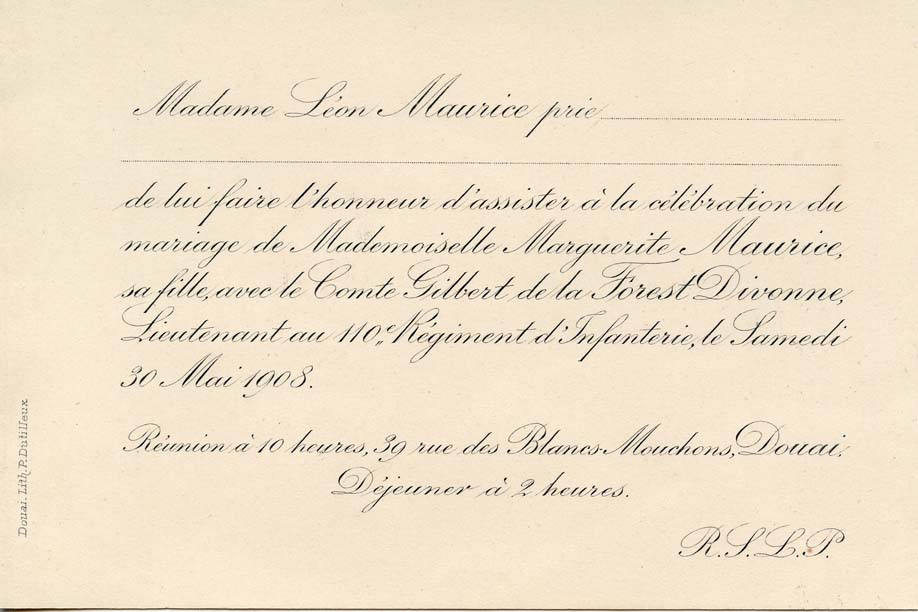 Madame Léon Maurice prie
de lui faire l'honneur d'assister à la célébration du
mariage de Mademoiselle Marguerite Maurice,
sa fille, avec le Comte Gilbert de la Forest Divonne,
Lieutenant au 110e Régiment d'Infanterie, le Samedi
30 Mai 1908.
Réunion à 10 heures, 39 rue des Blancs-Mouchons, Douai.
Déjeuner à 2 heures.
R. S. L. P.
Douai. Lith. P. Dutilleux.